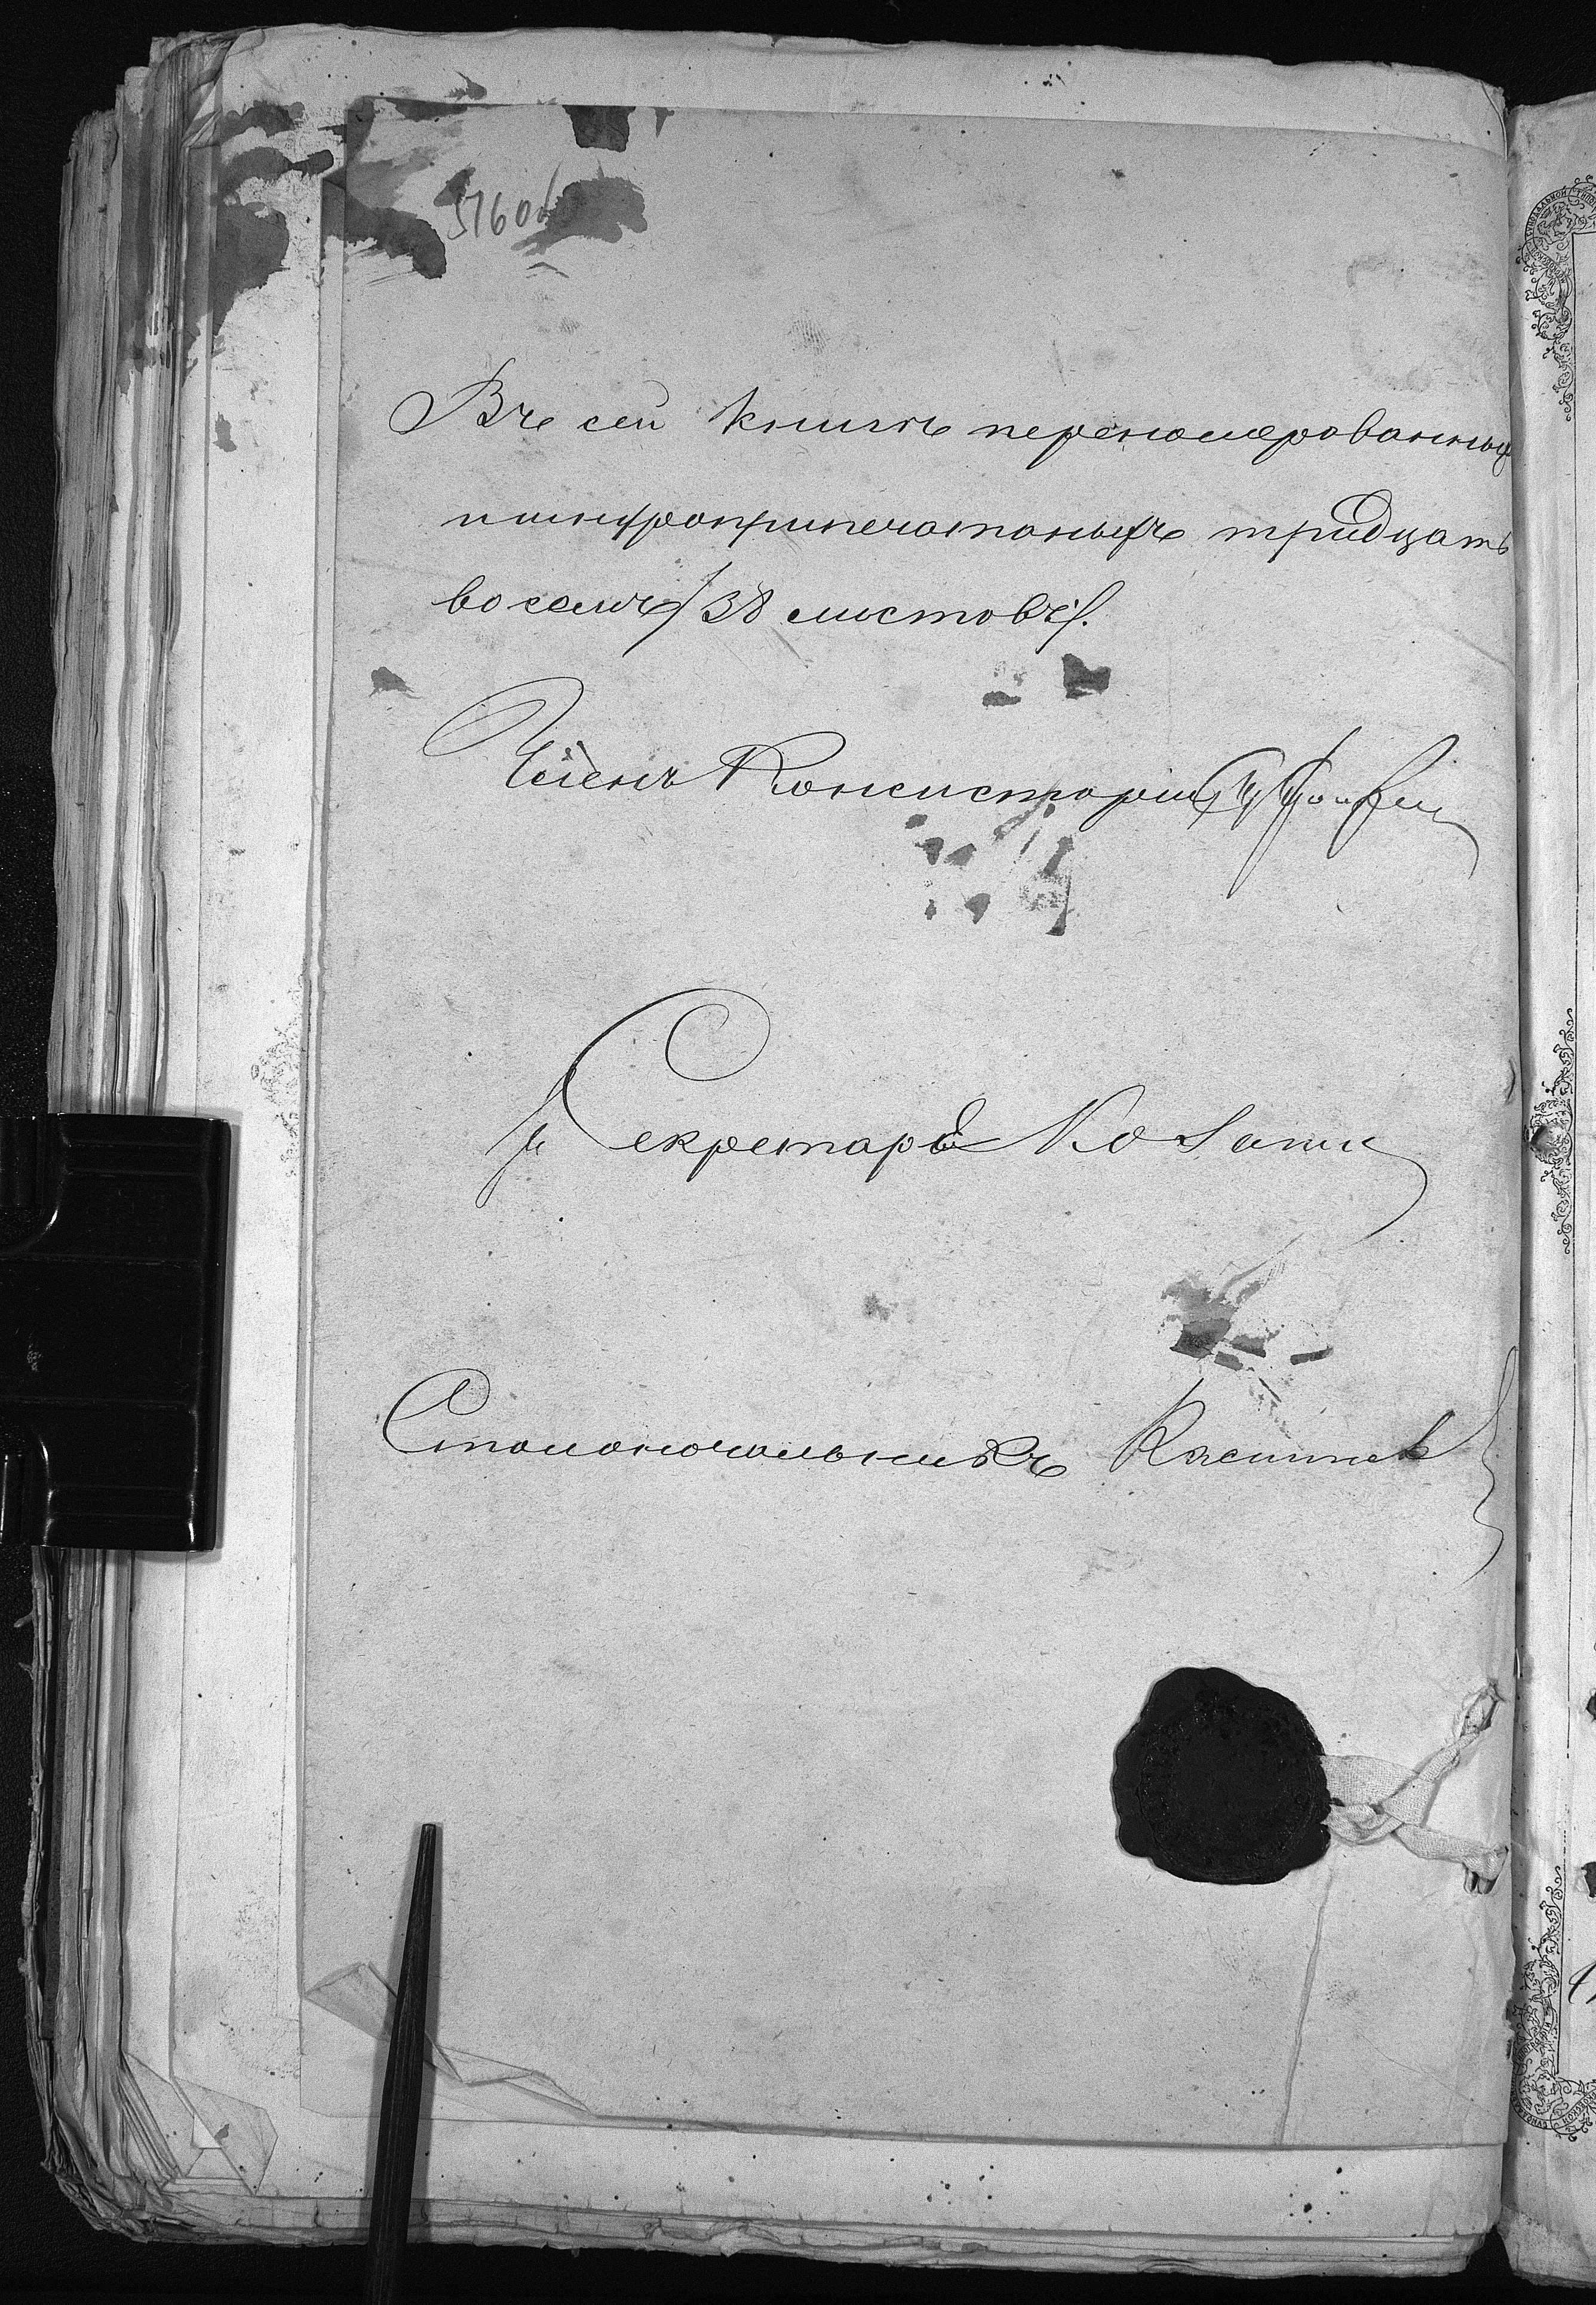 517об
Въ сей книгѣ перенумерованныхъ
и шнуроприпечатаныхъ тридцать
восемь /38 листовъ/.
Членъ Консисторіи
Секретарь
Столоначальникъ